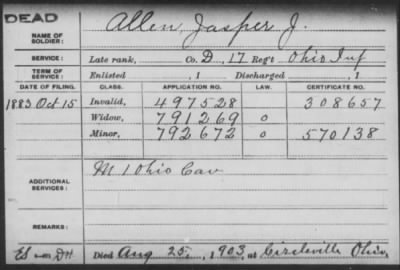 DEAD
NAME OF SOLDIER: Allen, Jasper J.
SERVICE: Late rank, Co. D, 17 Reg't Ohio Inf
TERM OF SERVICE: Enlisted , 1 Discharged , 1
DATE OF FILING. CLASS. APPLICATION NO. LAW. CERTIFICATE NO.
1883 Oct 15 Invalid, 497528 308657
Widow, 791269 o
Minor, 792672 o 570138
ADDITIONAL SERVICES: M 1 Ohio Cav
REMARKS:
Died Aug 25, 1903, at Circleville Ohio